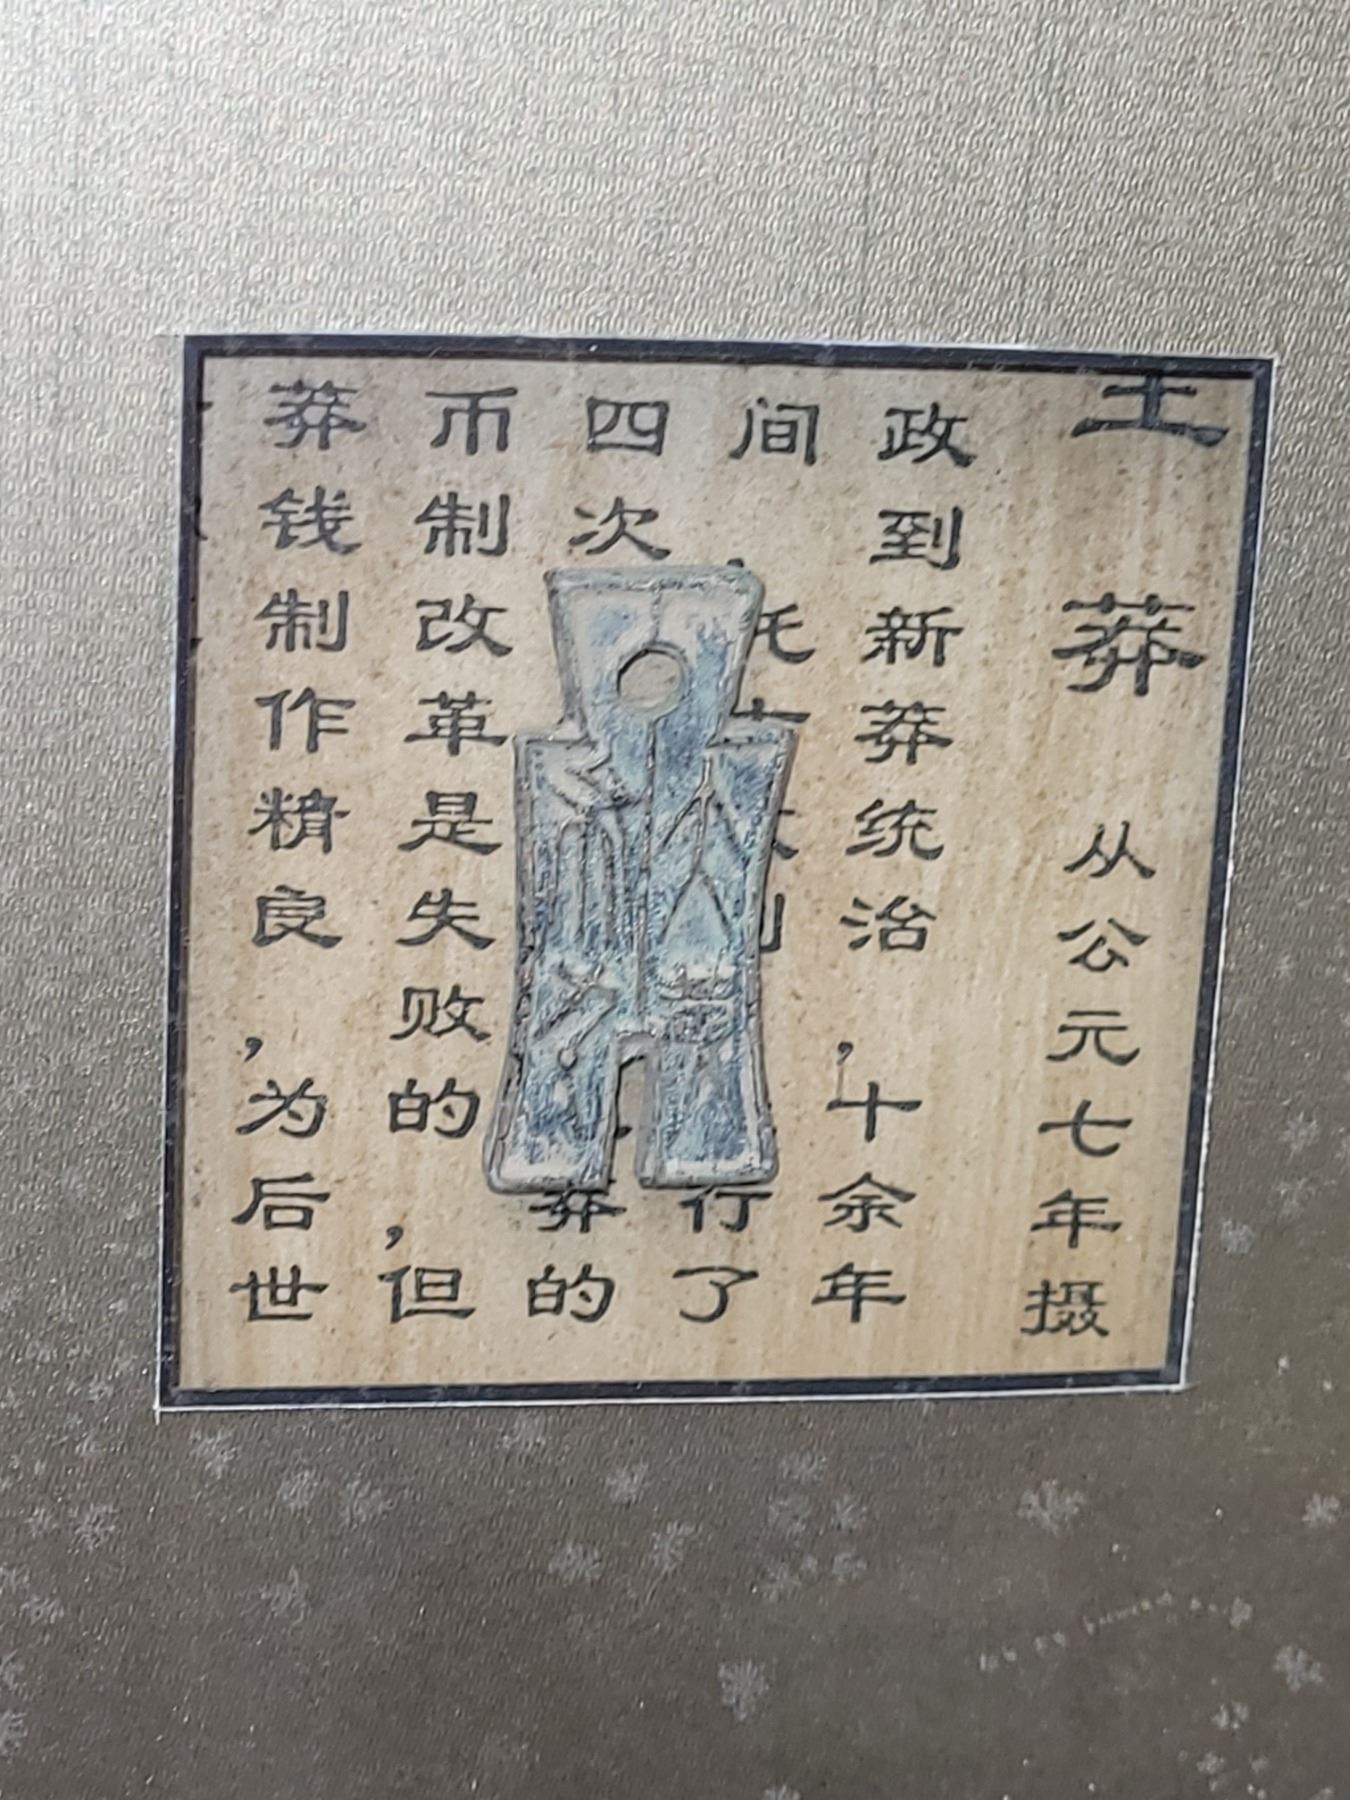 王莽 从公元七年摄
政到新莽统治，十余年
间，托 行了
四次 莽的
币制改革是失败的，但
莽钱制作精良，为后世
大黄布千